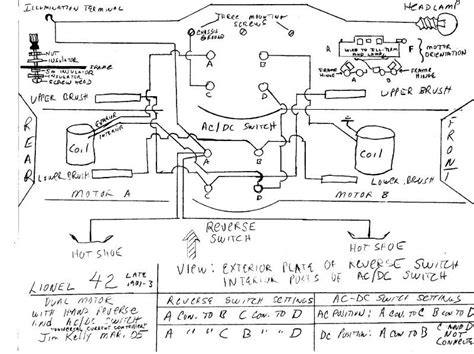 ILLUMINATION TERMINAL
HEADLAMP
THREE MOUNTING
SCREWS
CHASSIS
GROUND
NUT
INSULATOR
FRAME
SM INSULATOR
INSULATOR
SCREW HEAD
R
WIRE TO ILL. TERM
AND LAMP
F
MOTOR
ORIENTATION
FRAME
HINGE
FRAME
HINGE
C
D
C
D
UPPER BRUSH
UPPER BRUSH
REAR
EXTERIOR
INTERIOR
COIL
AC/DC SWITCH
COIL
FRONT
A
B
A
B
LOWER BRUSH
LOWER BRUSH
MOTOR A
MOTOR B
HOT SHOE
REVERSE
SWITCH
HOT SHOE
VIEW: EXTERIOR PLATE OF REVERSE SWITCH
INTERIOR PORTS OF AC/DC SWITCH
LIONEL 42 LATE
1921-3
DUAL MOTOR
WITH HAND REVERSE
AND AC/DC SWITCH
"UNIVERSAL CURRENT CONTROLLER"
Jim Kelly MAR. 05
REVERSE SWITCH SETTINGS
A CON. TO B C CON TO D
A " " C B " " D
AC-DC SWITCH SETTINGS
AC POSITION: A CON TO B C CON TO D
DC POSITION: A CON TO B C AND D
NOT
CONNECTED